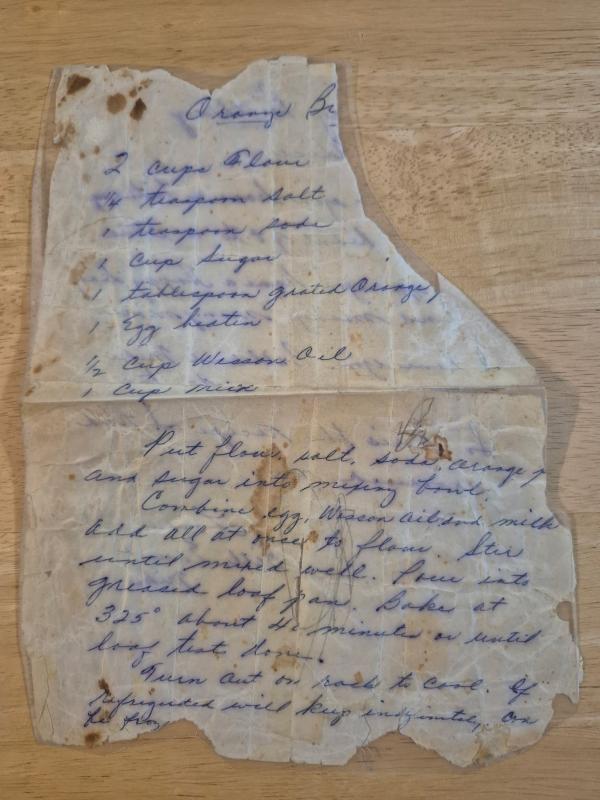 Orange Br
2 cups Flour
1/4 teaspoon salt
1 teaspoon soda
1 cup sugar
1 tablespoon grated Orange
1 Egg beaten
1/2 cup Wesson Oil
1 cup milk
Put flour, salt, soda, orange
and sugar into mixing bowl.
Combine egg, Wesson oil and milk
add all at once to flour. Stir
until mixed well. Pour into
greased loaf pan. Bake at
325° about minutes or until
loaf test done.
Turn out on rack to cool. If
refrigerated will keep indefinitely, can
be froz